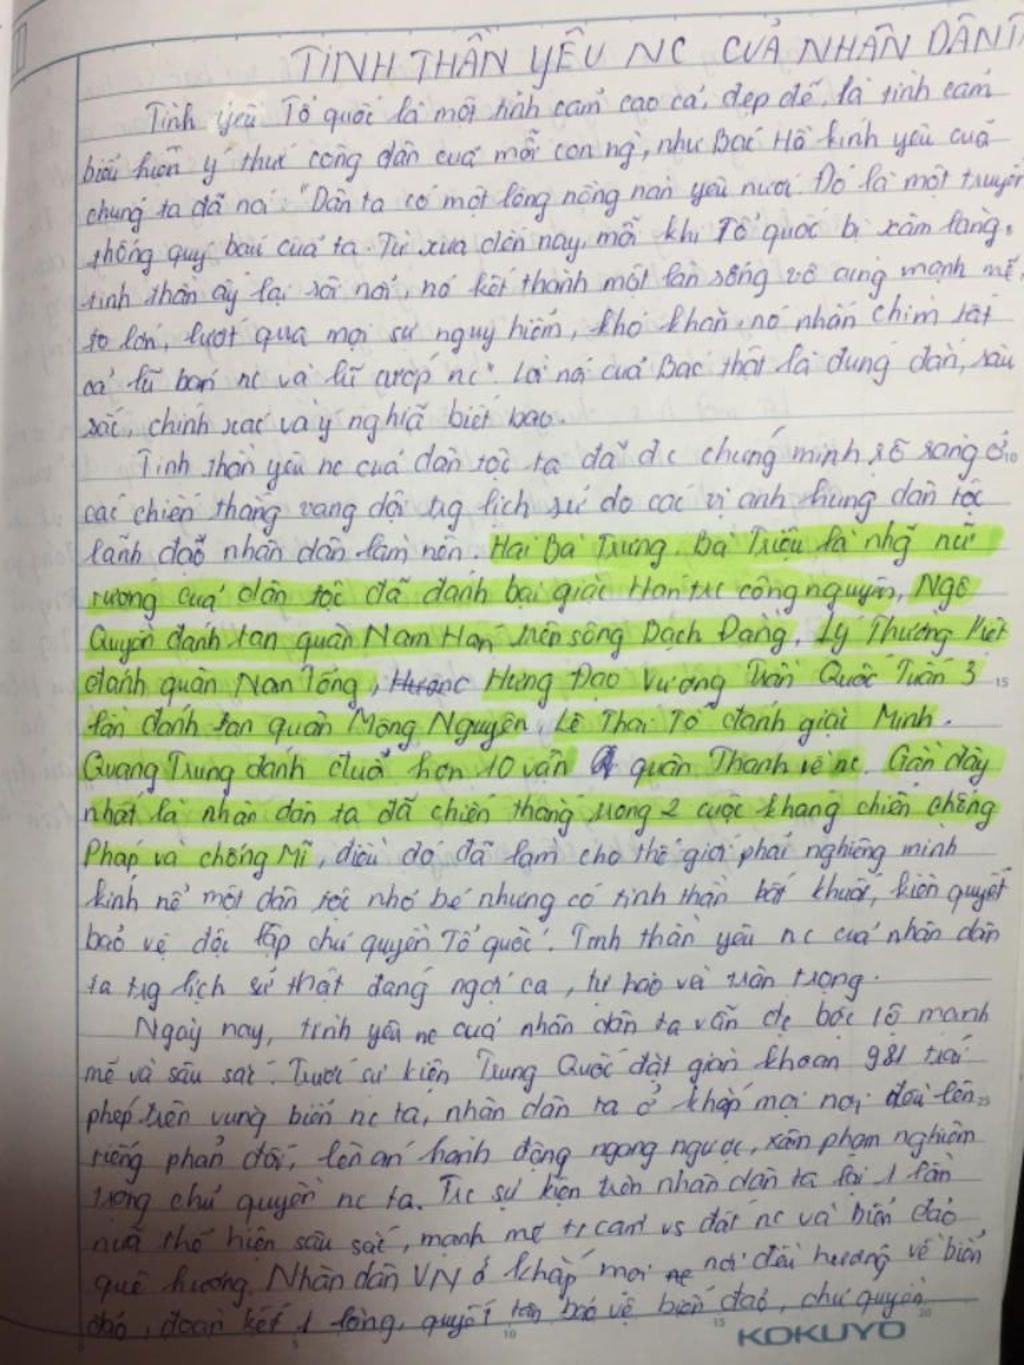 TINH THẦN YÊU NC CỦA NHÂN DÂN T
Tình yêu Tổ quốc là một tình cảm cao cả, đẹp đẽ, là tình cảm
biểu hiện ý thức công dân của mỗi con ng`, như Bác Hồ kính yêu của
chúng ta đã nói: "Dân ta có một lòng nồng nàn yêu nước. Đó là một truyền
thống quý báu của ta. Từ xưa đến nay, mỗi khi Tổ quốc bị xâm lăng,
tinh thần ấy lại sôi nổi, nó kết thành một làn sóng vô cùng mạnh mẽ,
to lớn, lướt qua mọi sự nguy hiểm, khó khăn, nó nhấn chìm tất
cả lũ bán nc và lũ cướp nc". Lời nói của Bác thật là đúng đắn, sâu
sắc, chính xác và ý nghĩa biết bao.
Tinh thần yêu nc của dân tộc ta đã đc chứng minh rõ ràng ở
các chiến thắng vang dội trg lịch sử do các vị anh hùng dân tộc
lãnh đạo nhân dân làm nên. Hai Bà Trưng, Bà Triệu là nhg~ nữ
tướng của dân tộc đã đánh bại giặc Hán trc công nguyên, Ngô
Quyền đánh tan quân Nam Hán trên sông Bạch Đằng, Lý Thường Kiệt
đánh quân Nan Tống, Hưng Đạo Vương Trần Quốc Tuấn 3
lần đánh tan quân Mông Nguyên, Lê Thái Tổ đánh giặc Minh.
Quang Trung đánh đuổi hơn 10 vạn quân Thanh về nc. Gần đây
nhất là nhân dân ta đã chiến thắng trong 2 cuộc kháng chiến chống
Pháp và chống Mĩ, điều đó đã làm cho thế giới phải nghiêng mình
kính nể một dân tộc nhỏ bé nhưng có tinh thần bất khuất, kiên quyết
bảo vệ độc lập chủ quyền Tổ quốc. Tinh thần yêu nc của nhân dân
ta trg lịch sử thật đáng ngợi ca, tự hào và trân trọng.
Ngày nay, tình yêu nc của nhân dân ta vẫn đc bộc lộ mạnh
mẽ và sâu sắc. Trước sự kiện Trung Quốc đặt giàn khoan 981 trái
phép trên vùng biển nc ta, nhân dân ta ở khắp mọi nơi đều lên
tiếng phản đối, lên án hành động ngang ngược, xâm phạm nghiêm
trọng chủ quyền nc ta. Trc sự kiện trên nhân dân ta lại 1 lần
nữa thể hiện sâu sắc, mạnh mẽ t/cảm vs đất nc và biển đảo
quê hương. Nhân dân VN ở khắp mọi nơi đều hướng về biển
đảo, đoàn kết 1 lòng, quyết tâm bảo vệ biển đảo, chủ quyền
KOKUYO